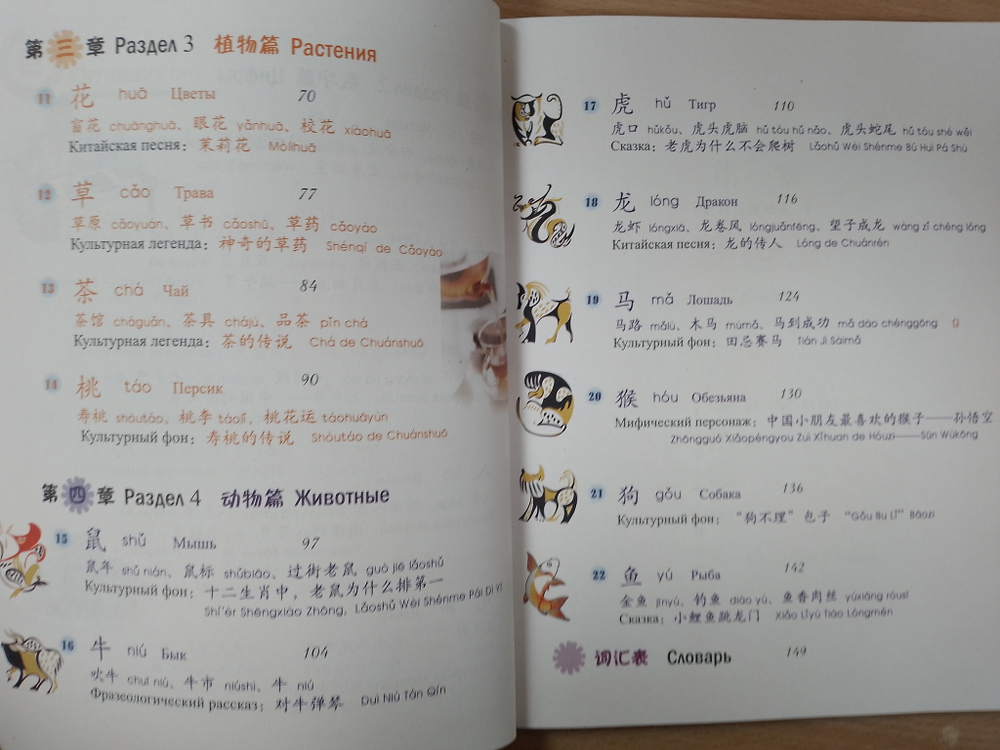 第三章 Раздел 3 植物篇 Растения
11 花 huā Цветы 70
窗花 chuānghuā、眼花 yǎnhuā、校花 xiàohuā
Китайская песня: 茉莉花 Mòlìhuā
12 草 cǎo Трава 77
草原 cǎoyuán、草书 cǎoshū、草药 cǎoyào
Культурная легенда: 神奇的草药 Shénqí de Cǎoyào
13 茶 chá Чай 84
茶馆 cháguǎn、茶具 chájù、品茶 pǐn chá
Культурная легенда: 茶的传说 Chá de Chuánshuō
14 桃 táo Персик 90
寿桃 shòutáo、桃李 táolǐ、桃花运 táohuāyùn
Культурный фон: 寿桃的传说 Shòutáo de Chuánshuō
第四章 Раздел 4 动物篇 Животные
15 鼠 shǔ Мышь 97
鼠年 shǔ nián、鼠标 shǔbiāo、过街老鼠 guò jiē lǎoshǔ
Культурный фон: 十二生肖中，老鼠为什么排第一
Shí'èr Shēngxiào Zhōng, Lǎoshǔ Wèi Shénme Pái Dì Yī
16 牛 niú Бык 104
吹牛 chuī niú、牛市 niúshì、牛 niú
Фразеологический рассказ: 对牛弹琴 Duì Niú Tán Qín
17 虎 hǔ Тигр 110
虎口 hǔkǒu、虎头虎脑 hǔ tóu hǔ nǎo、虎头蛇尾 hǔ tóu shé wěi
Сказка: 老虎为什么不会爬树 Lǎohǔ Wèi Shénme Bú Huì Pá Shù
18 龙 lóng Дракон 116
龙虾 lóngxiā、龙卷风 lóngjuǎnfēng、望子成龙 wàng zǐ chéng lóng
Китайская песня: 龙的传人 Lóng de Chuánrén
19 马 mǎ Лошадь 124
马路 mǎlù、木马 mùmǎ、马到成功 mǎ dào chénggōng
Культурный фон: 田忌赛马 Tián Jì Sàimǎ
20 猴 hóu Обезьяна 130
Мифический персонаж: 中国小朋友最喜欢的猴子——孙悟空
Zhōngguó Xiǎopéngyou Zuì Xǐhuan de Hóuzi——Sūn Wùkōng
21 狗 gǒu Собака 136
Культурный фон: “狗不理”包子 “Gǒu Bu Lǐ” Bāozi
22 鱼 yú Рыба 142
金鱼 jīnyú、钓鱼 diào yú、鱼香肉丝 yúxiāng ròusī
Сказка: 小鲤鱼跳龙门 Xiǎo Lǐyú Tiào Lóngmén
词汇表 Словарь 149